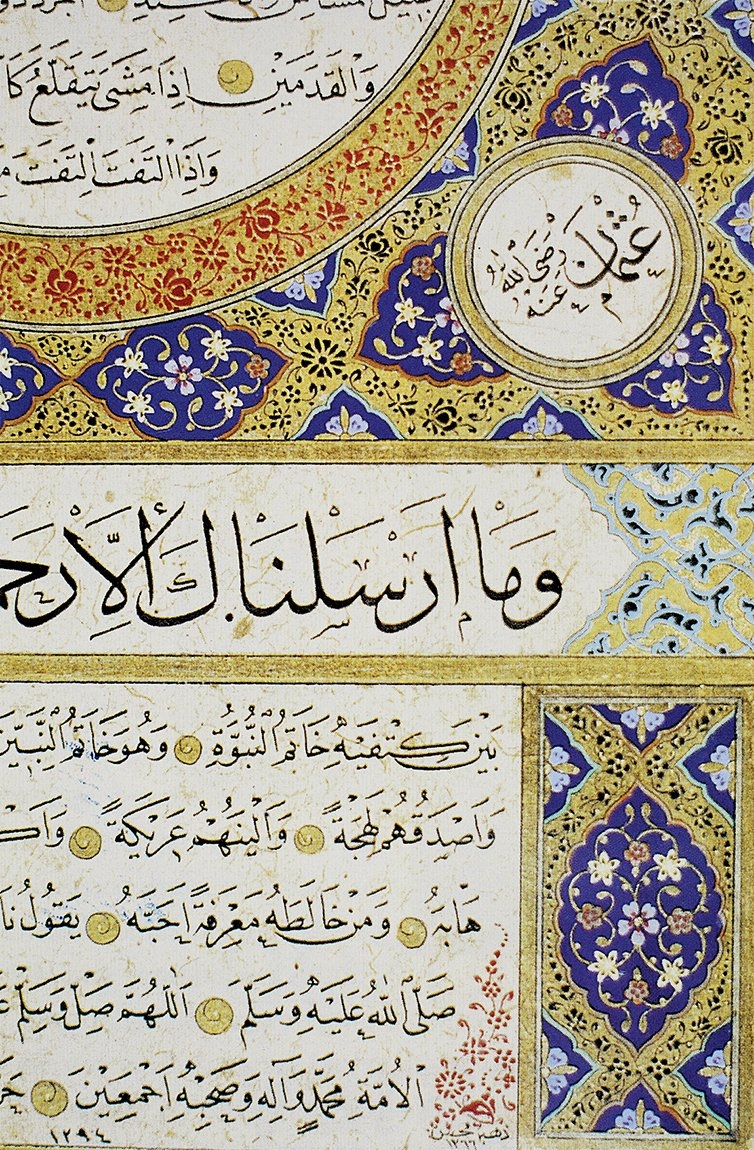 وَالْقَدَمَيْنِ اِذَا مَشَى يَتَقَلَّعُ كَا
وَاِذَا الْتَفَتَ الْتَفَتَ
عُثْمَانْ رَضِىَ اللّٰهُ عَنْهُ
وَمَا اَرْسَلْنَاكَ اِلاَّ رَحْمَـ
بَيْنَ كَتِفَيْهِ خَاتَمُ النُّبُوَّةِ وَهُوَ خَاتَمُ النَّبِيِّينَ
وَاَصْدَقُهُمْ لَهْجَةً وَاَلْيَنُهُمْ عَرِيكَةً وَاَكْـ
هَابَهُ وَمَنْ خَالَطَهُ مَعْرِفَةً اَحَبَّهُ يَقُولُ نَا
صَلَّى اللّٰهُ عَلَيْهِ وَسَلَّمَ اَللّٰهُمَّ صَلِّ وَسَلِّمْ عَـ
الْاُمَّةِ مُحَمَّدٍ وَاٰلِهِ وَصَحْبِهِ اَجْمَعِينَ
١٢٩٤
ذهبه حسين